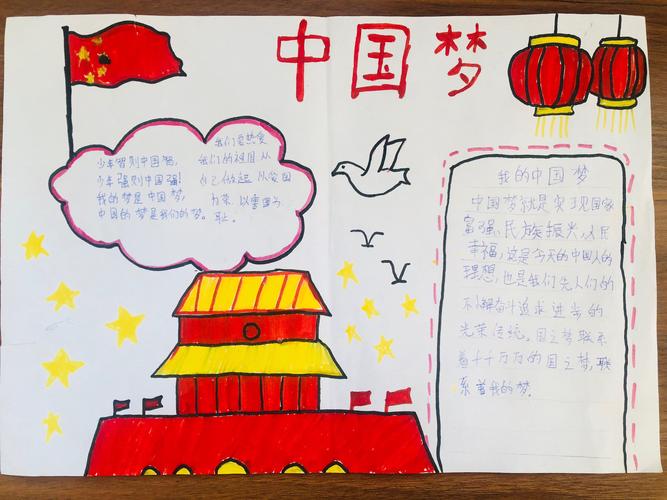 中国梦
少年智则中国智,
少年强则中国强!
我的梦是中国梦,
中国的梦是我们的梦。
我们要热爱
我们的祖国从
自己做起从爱国
为荣以害国为
耻。
我的中国梦
中国梦就是实现国家
富强、民族振兴、人民
幸福,这是今天的中国人的
理想,也是我们先人们的
不懈奋斗追求进步的
光荣传统。国之梦联系
着千千万万的国之梦,联
系着我的梦。